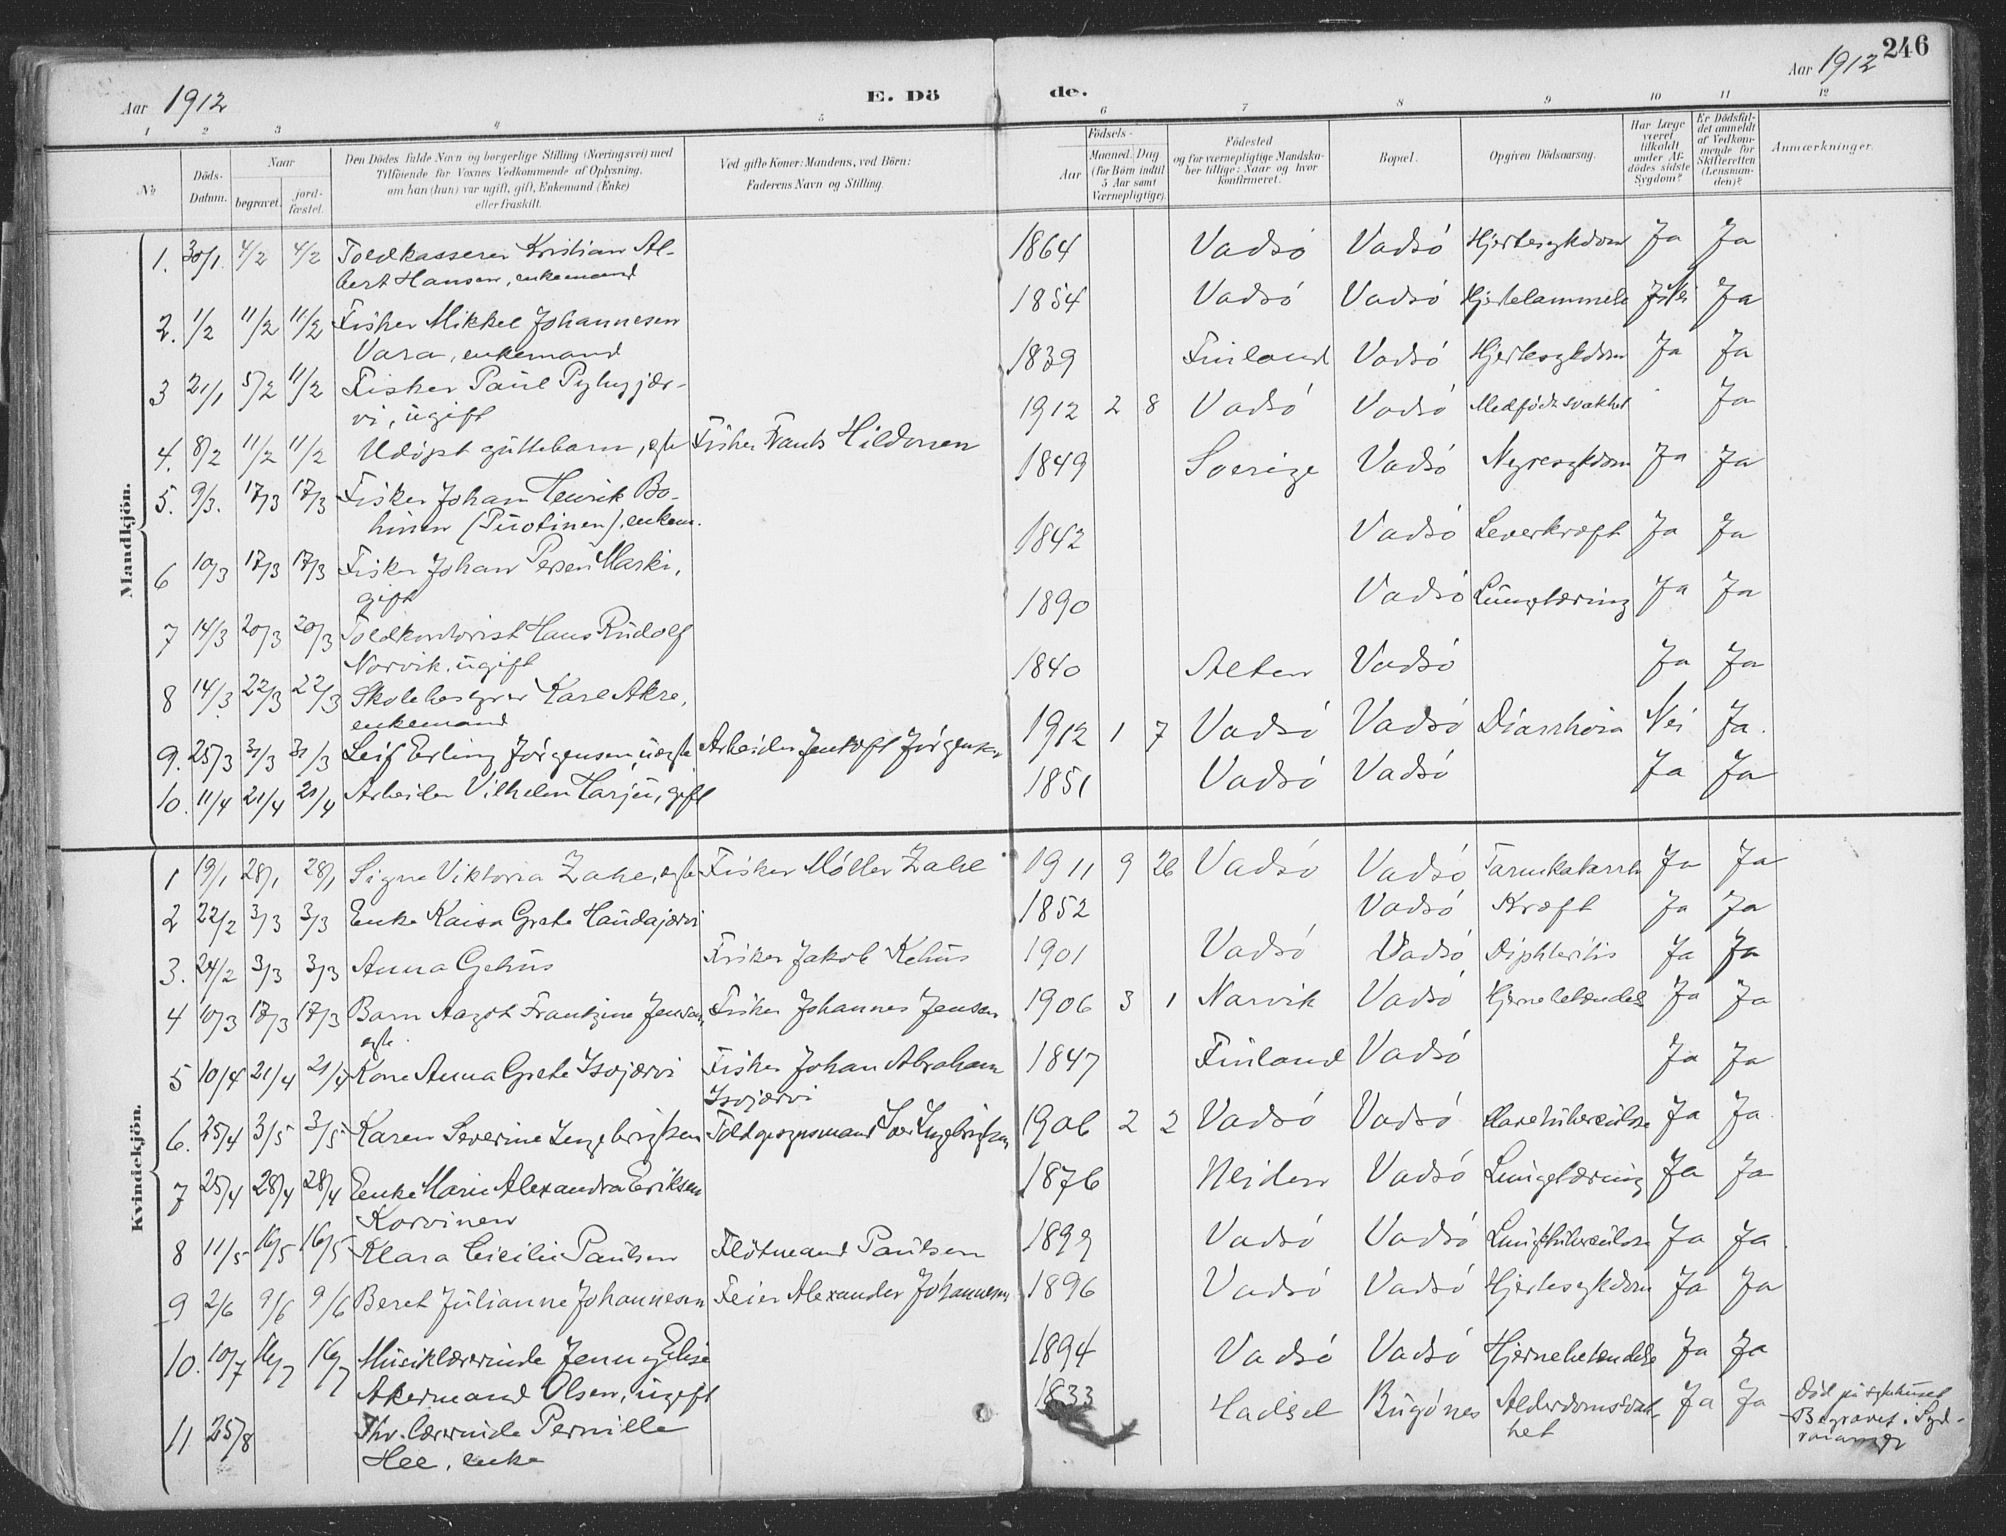 246
Aar 1912
E. Dö de.
Aar 1912
1 2 3 4 5 6 7 8 9 10 11 12
No
Döds-Datum.
Naar
begravet.
jord-fæstet.
Den Dödes fulde Navn og borgerlige Stilling (Næringsvei) med
Tilföiende for Voxnes Vedkommende af Oplysning,
om han (hun) var ugift, gift, Enkemand (Enke)
eller fraskilt.
Ved gifte Koner: Mandens, ved Börn:
Faderens Navn og Stilling.
Födsels-
Aar
Maaned. Dag
(for Børn indtil
5 Aar samt
Værnepligtige).
Födested
og for værnepligtige Mandskaber
tillige: Naar og hvor
konfirmeret.
Bopæl.
Opgiven Dödsaarsag.
Har Læge
været
tilkaldt
under Afdödes
sidste
Sygdom?
Er Dödsfaldet
anmeldt
af Vedkommende
for
Skifteretten
(Lensmanden)?
Anmærkninger.
Mandkjön.
1. 30/1. 4/2 4/2 Toldkasserer Kristian Al-
bert Hansen, enkemand 1864 Vadsó Vadsó Hjertesykdom Ja Ja
2. 1/2 11/2 11/2 Fisker Mikkel Johannesen
Vara, enkemand 1854 Vadsó Vadsó Hjertelammelse Nei Ja
3 21/1 5/2 11/2 Fisker Paul Pyhyjær-
vi, ugift 1839 Finland Vadsó Hjertesykdom Ja Ja
4. 8/2 11/2 11/2 Udöpt guttebarn, egte Fisker Frants Hildonen 1912 2 8 Vadsó Vadsó Medfödt svakhet Ja
5. 9/3. 17/3 17/3 Fisker Johan Henrik Bo-
hinen (Puotinen), enkem. 1849 Sverige Vadsó Nyresykdom Ja Ja
6 10/3 17/3 17/3 Fisker Johan Persen Maski,
gift 1842 Vadsó Leverkræft Ja Ja
7 14/3 20/3 20/3 Toldkontorist Hans Rudolf
Narvik, ugift 1890 Vadsó Lungetæring Ja Ja
8 14/3 22/3 22/3 Skolebestyrer Karl Akre,
enkemand 1840 Alten Vadsó Ja Ja
9. 25/3 31/3 31/3 Leif Erling Jörgensen, uegte Arbeider Jentoft Jörgensen 1912 1 7 Vadsó Vadsó Diarrhoia Nei Ja.
10. 11/4 21/4 21/4 Arbeider Vilhelm Harju, gift 1851 Vadsó Vadsó Ja Ja
Kvindekjön.
1 19/1 28/1 28/1 Signe Viktoria Zahl, egte Fisker Möller Zahl 1911 9 26 Vadsó Vadsó Tarmkatarrh Ja Ja
2 22/2 3/3 3/3 Enke Kaisa Grete Haudajærvi 1852 Vadsó Kræft Ja Ja
3. 24/2 3/3 3/3 Anna Gehus Fisker Jakob Kehus 1901 Vadsó Vadsó Diphteritis Ja Ja
4 10/3 17/3 17/3 Barn Aagot Frantzine Jensen,
egte. Fisker Johannes Jensen 1906 3 1 Narvik Vadsó Hjernebetændelse Ja Ja
5 10/4 21/4 21/4 Kone Anna Grete Isojærvi Fisker Johan Abraham
Isojærvi 1847 Finland Vadsó Ja Ja
6. 25/4 3/5 3/5 Karen Severine Ingebrigtsen Toldopsynsmand Ingebrigtsen 1906 2 2 Vadsó Vadsó Mavetuberculose Ja Ja
7 25/4 28/4 28/4 Enke Marie Alexandra Eriksen
Korvinen 1876 Neiden Vadsó Lungetæring Ja Ja
8 11/5 16/5 16/5 Klara Cicilie Paulsen Flötmand Paulsen 1899 Vadsó Vadsó Lungetuberculose Ja Ja
9 2/6 9/6 9/6 Beret Julianne Johannesen Feier Alexander Johannesen 1896 Vadsó Vadsó Hjertesykdom Ja Ja
10. 10/7 16/7 16/7 Musiklærerinde Jenny Elise
Akermand Olsen, ugift 1894 Vadsó Vadsó Hjernebetændelse Ja Ja
11 25/8 Fhv. lærerinde Pernille
Hee, enke 1833 Hadsel Bugónes Alderdomssvak-
het Ja Ja Död på sykehuset
Begravet i Syd-
varanger